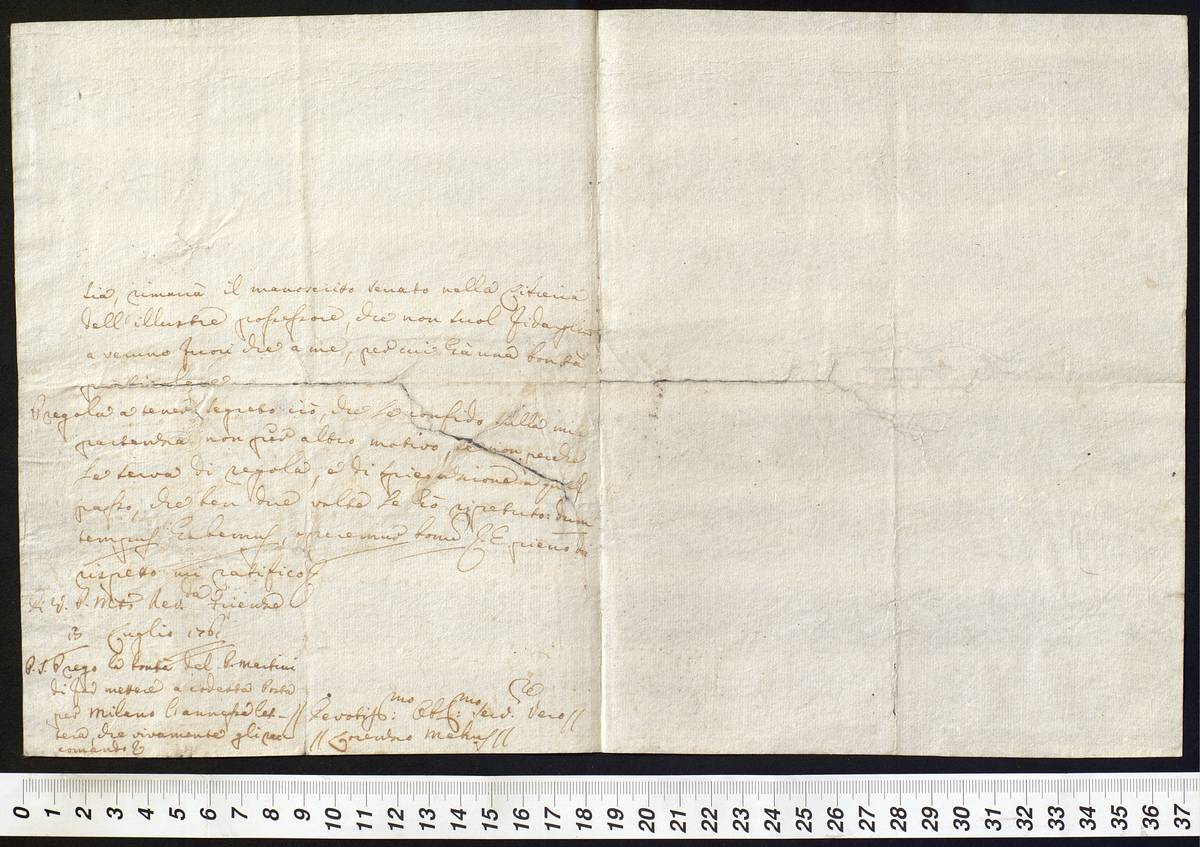 sia, rimarrà il manoscritto serrato nella Libreria
dell'illustre possessore, che non suol fidarglieli
a veruno fuori che a me, per cui hà una bontà
particolare.
Pregola a tener segreto ciò, che le confido sulla mia
partenza non per altro motivo, se non perche
le serva di regola, e di spiegazione a quel
passo, che ben due volte le hò ripetuto: dum
tempus habemus, operemur bonum. E pieno di
rispetto mi ratifico
Di V. P. M.to Rev.da Firenze
13 Luglio 1761
P. S. Prego la bontà del P. Martini
di far mettere a codesta Posta
per Milano l'annessa let-//
tera, che vivamente gli rac-
comando
Devotiss:mo Obb:mo Serv.re Vero//
//Lorenzo Mehus//
0 1 2 3 4 5 6 7 8 9 10 11 12 13 14 15 16 17 18 19 20 21 22 23 24 25 26 27 28 29 30 31 32 33 34 35 36 37